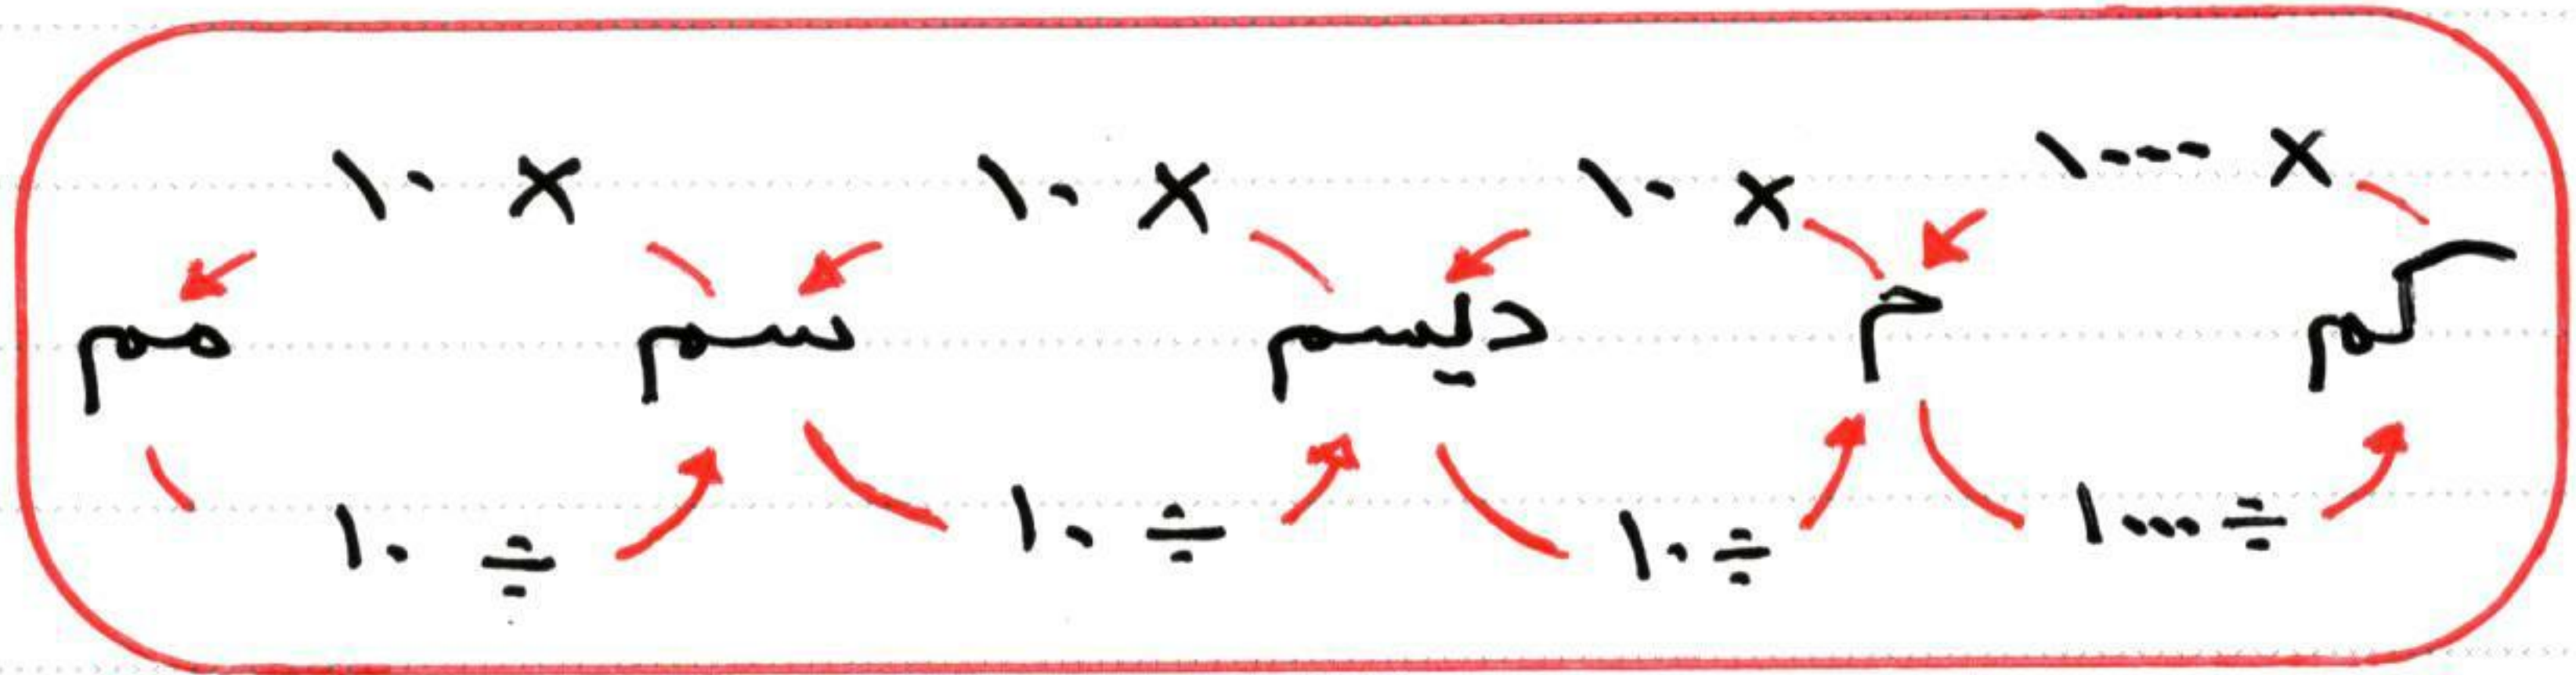 × ١٠٠٠ × ١٠ × ١٠ × ١٠
كم م ديسم سم مم
÷ ١٠٠٠ ÷ ١٠ ÷ ١٠ ÷ ١٠